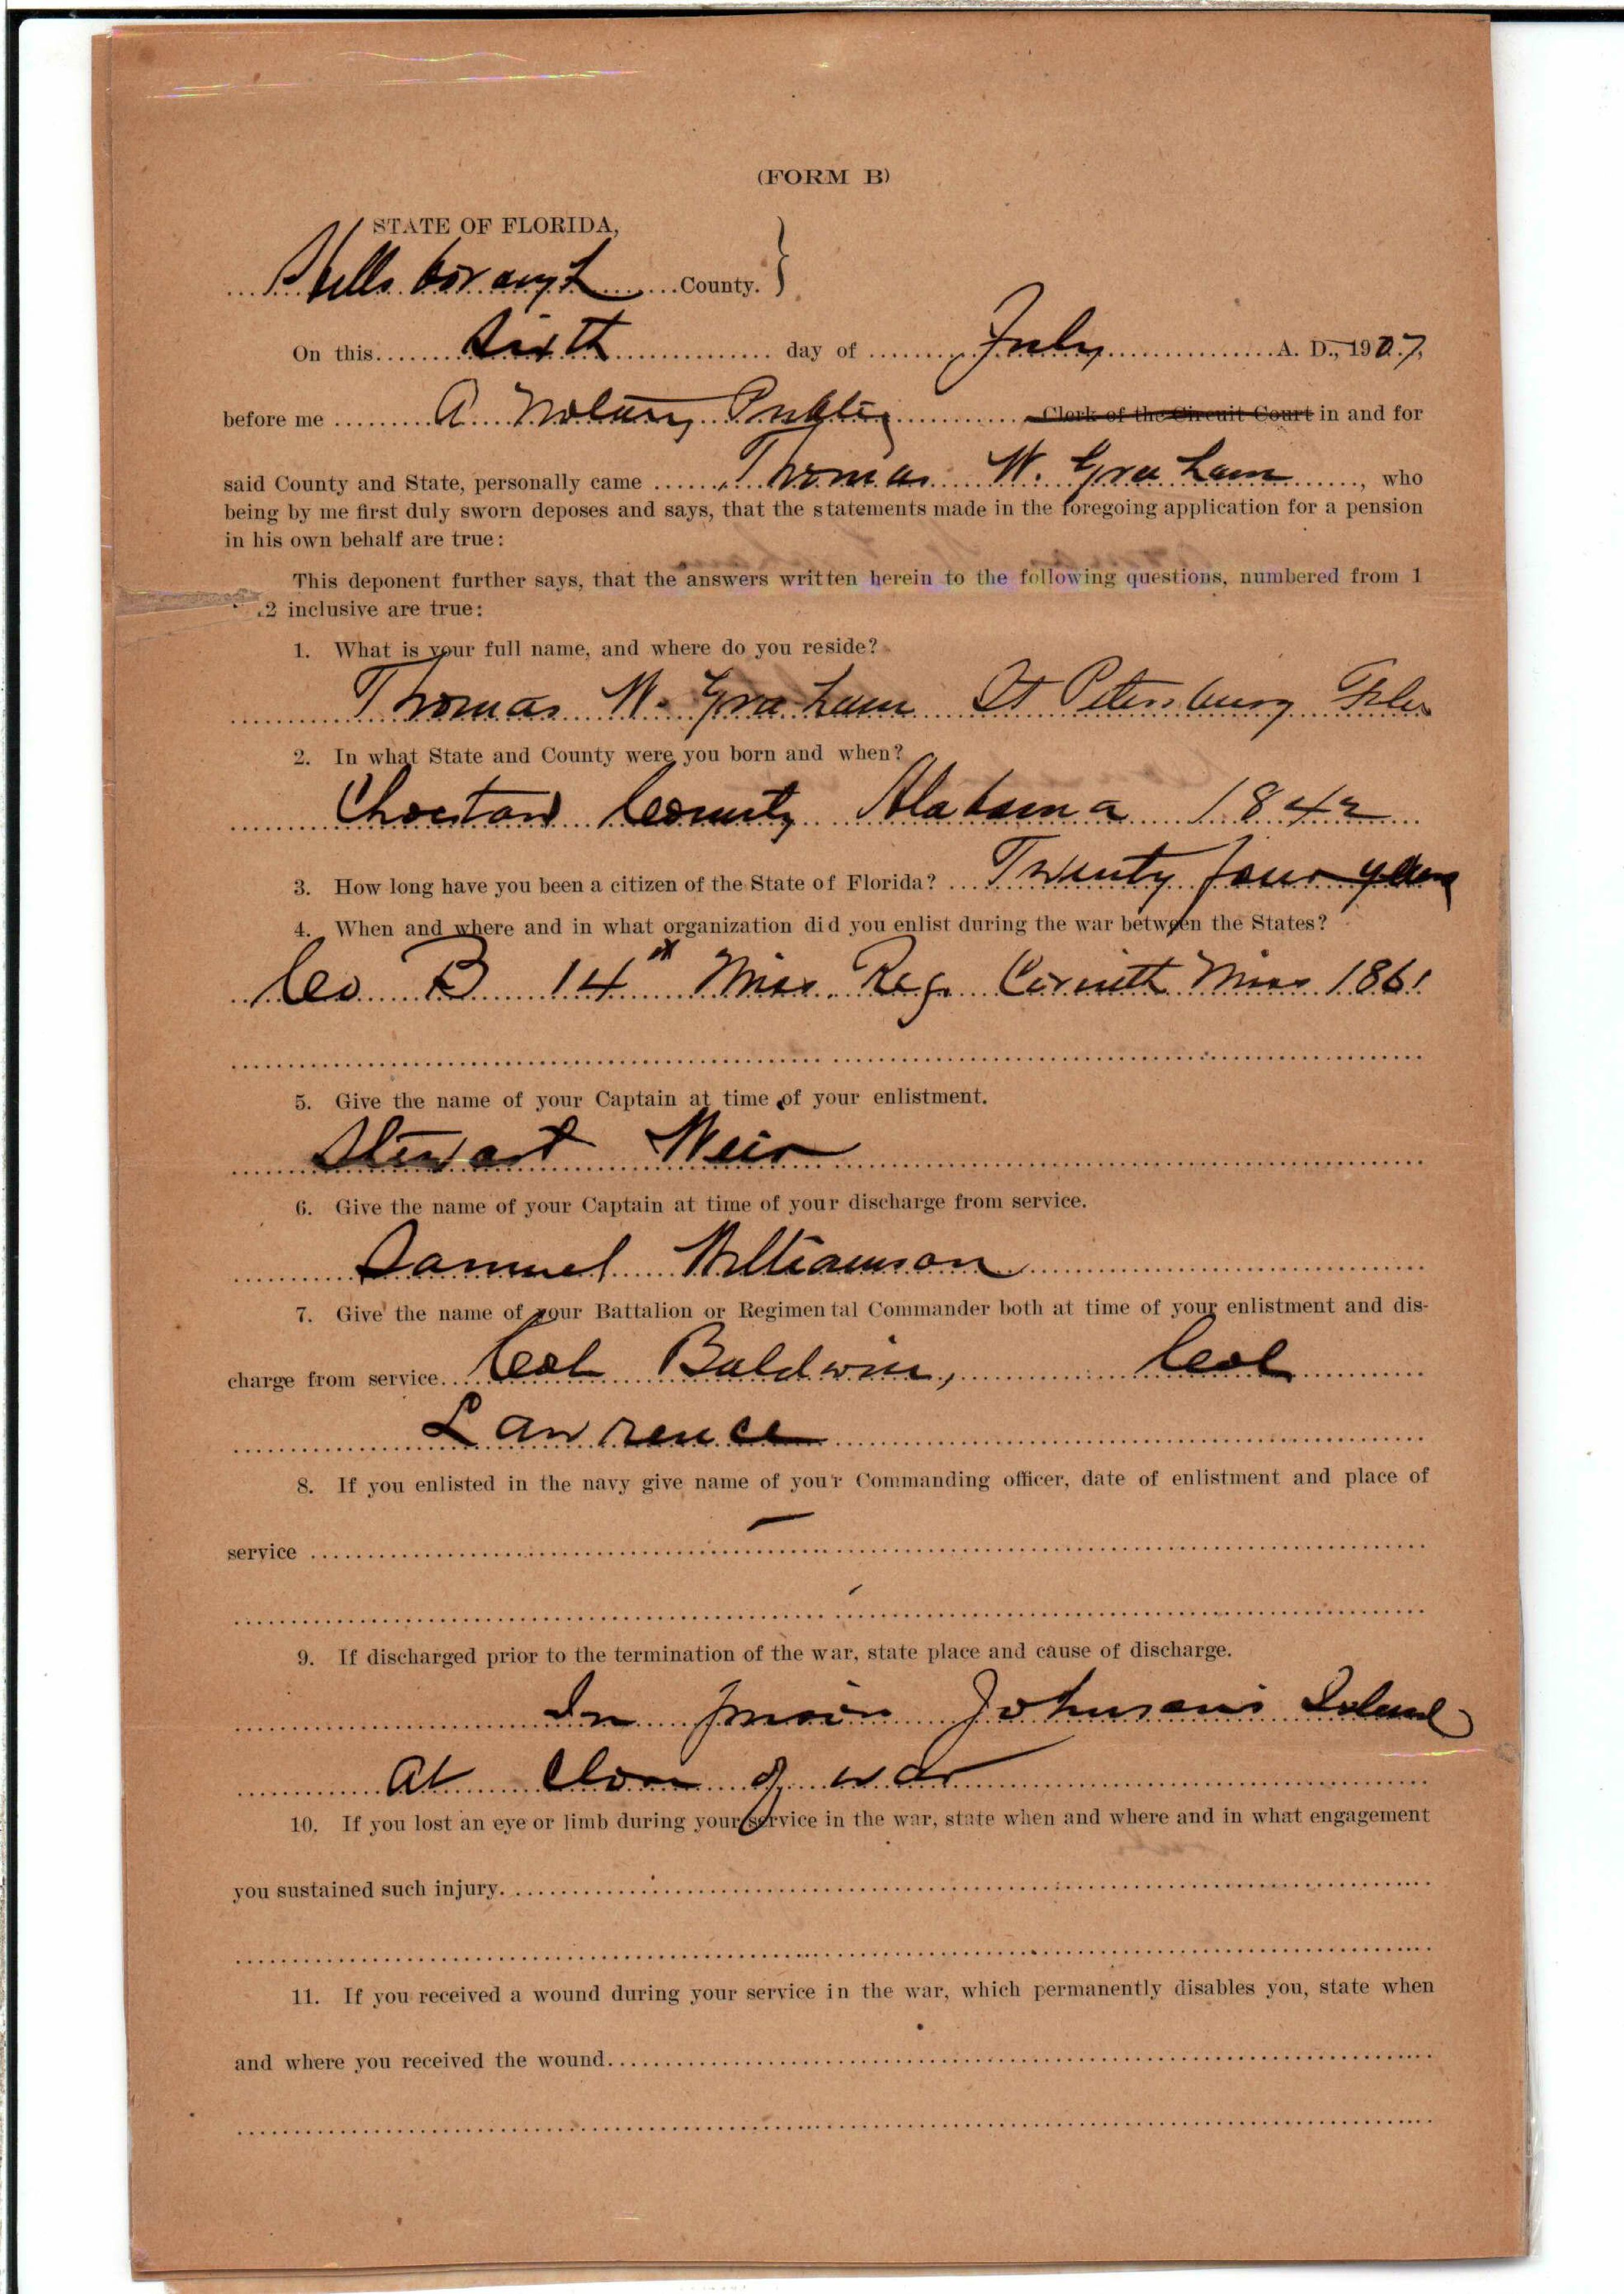 (FORM B)
STATE OF FLORIDA,
Hillsborough County.
On this sixth day of July A. D., 1907,
before me A Notary Public Clerk of the Circuit Court in and for
said County and State, personally came Thomas W. Graham, who
being by me first duly sworn deposes and says, that the statements made in the foregoing application for a pension
in his own behalf are true:
This deponent further says, that the answers written herein to the following questions, numbered from 1
2 inclusive are true:
1. What is your full name, and where do you reside?
Thomas W. Graham St Petersburg Fla
2. In what State and County were you born and when?
Choctaw County Alabama 1842
3. How long have you been a citizen of the State of Florida? Twenty four years
4. When and where and in what organization did you enlist during the war between the States?
Co B 14th Miss. Reg. Corinth Miss 1861
5. Give the name of your Captain at time of your enlistment.
Stewart Weir
6. Give the name of your Captain at time of your discharge from service.
Samuel Williamson
7. Give the name of your Battalion or Regimental Commander both at time of your enlistment and dis-
charge from service. Col Baldwin, Col
Lawrence
8. If you enlisted in the navy give name of your Commanding officer, date of enlistment and place of
service
9. If discharged prior to the termination of the war, state place and cause of discharge.
In prison Johnson's Island
At close of war
10. If you lost an eye or limb during your service in the war, state when and where and in what engagement
you sustained such injury.
11. If you received a wound during your service in the war, which permanently disables you, state when
and where you received the wound.